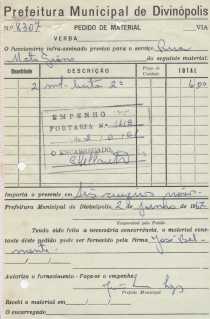 Prefeitura Municipal de Divinópolis
N.º 8307 PEDIDO DE MATERIAL VIA
VERBA
O funcionário infra-assinado precisa para o serviço Rua
Mato Grosso do seguinte material:
Quantidade DESCRIÇÃO Preço da Unidade TOTAL
2 brita 2ª 6,00
EMPENHO
PORTARIA N.º 1618
O ENCARREGADO,
Importa o presente em seis cruzeiros novos
Prefeitura Municipal de Divinópolis, 2 de junho de 1967
Responsável pelo Pedido
Tendo sido feito a necessária concorrência, o material constante dêste pedido pode ser fornecido pela firma José Bel-
Autorizo o fornecimento - Faça-se o empenho
Prefeito Municipal
Recebi o material em / /
O encarregado